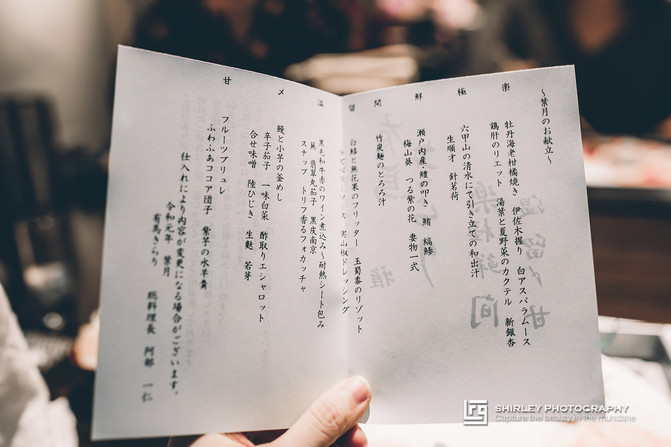 ～葉月のお献立～
楽
牡丹海老柑橘焼き 伊佐木握り 白アスパラムース
鶏肝のリエット 湯葉と夏野菜のカクテル 新銀杏
極
六甲山の清水にて引き立ての和出汁
生順才 針茗荷
鮮
瀬戸内産・鱧の叩き 鮪 縞鯵
梅山葵 つる紫の花 妻物一式
間
竹炭麺のとろろ汁
留
白鱚と無花果のフリッター 玉蜀黍のリゾット
実山椒ドレッシング
温
黒毛和牛赤のワイン煮込み～耐熱シート包み
無 翡翠丸茄子 黒皮南京
スナップ トリフ香るフォカッチャ
〆
鰻と小芋の釜めし
辛子茄子 一味白菜 酢取りエシャロット
合せ味噌 陸ひじき 生麩 若芽
甘
フルーツブリュレ
ふわふあココア団子 紫芋の水羊羹
仕入れにより内容が変更になる場合がございます。
令和元年 葉月
有馬きらり 総料理長 阿部 一仁
SHIRLEY PHOTOGRAPHY
Capture the beauty in the mundane